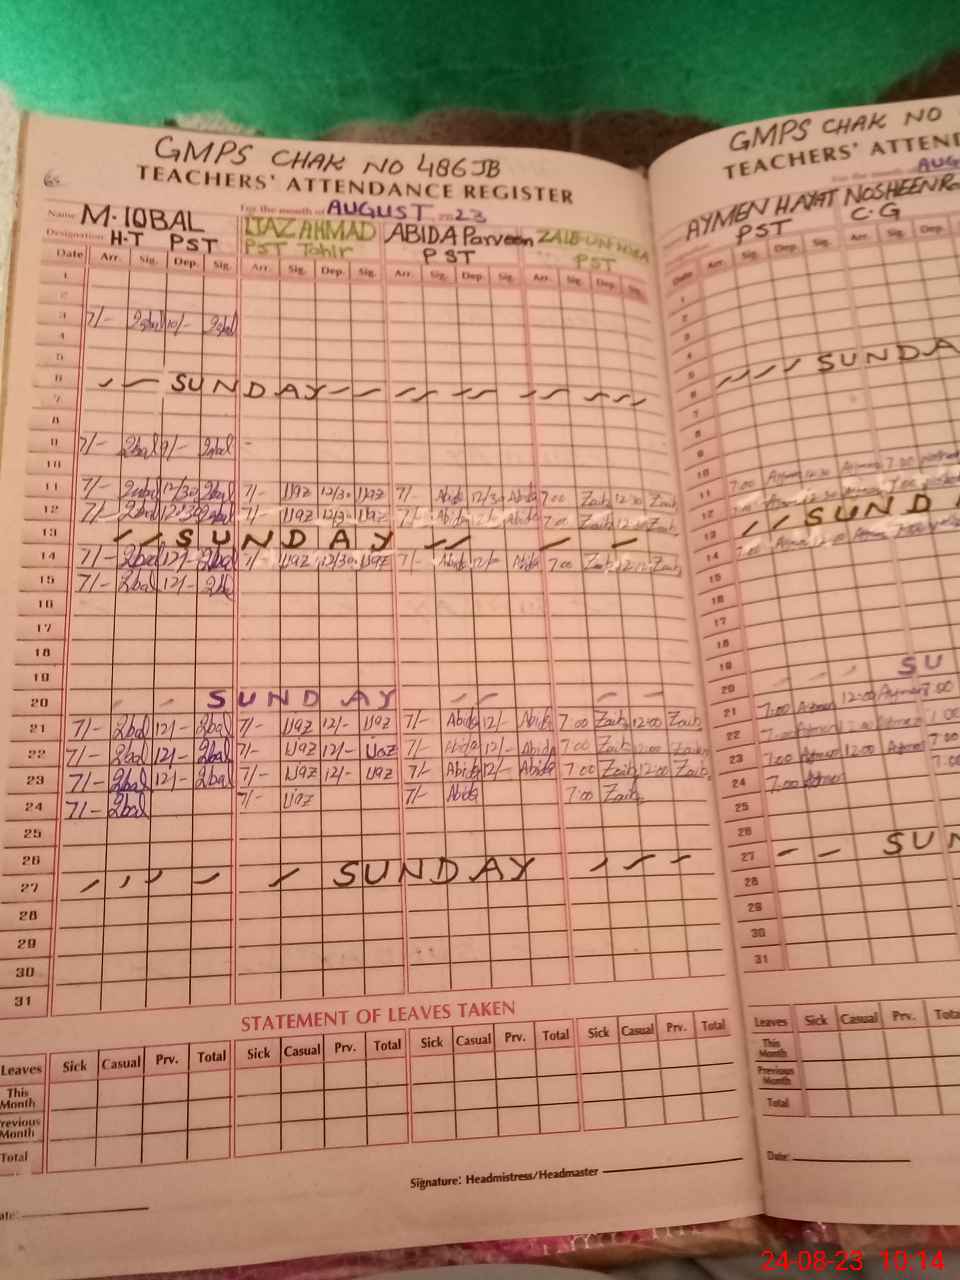 GMPS CHAK NO 486 JB
TEACHERS' ATTENDANCE REGISTER
For the month of AUGUST 2023
Name M. IQBAL IJAZ AHMAD ABIDA Parveen ZAIB-UN-NISA
Designation H.T PST PST Tahir PST PST
Date Arr. Sig. Dep. Sig. Arr. Sig. Dep. Sig. Arr. Sig. Dep. Sig. Arr. Sig. Dep. Sig.
1
2
3 7/- Iqbal 10/- Iqbal
4
5
6 SUNDAY
7
8
9 7/- Iqbal 9/- Iqbal
10
11 7/- Iqbal 12/30 Iqbal 7/- Ijaz 12/30 Ijaz 7/- Abida 12/30 Abida 7:00 Zaib 12:30 Zaib
12 7/- Iqbal 12/30 Iqbal 7/- Ijaz 12/30 Ijaz 7/- Abida 12/- Abida 7:00 Zaib 12:30 Zaib
13 SUNDAY
14 7/- Iqbal 12/- Iqbal 7/- Ijaz 12/30 Ijaz 7/- Abida 12/- Abida 7:00 Zaib Zaib
15 7/- Iqbal 12/- Iqbal
16
17
18
19
20 SUNDAY
21 7/- Iqbal 12/- Iqbal 7/- Ijaz 12/- Ijaz 7/- Abida 12/- Abida 7:00 Zaib 12:00 Zaib
22 7/- Iqbal 12/- Iqbal 7/- Ijaz 12/- Ijaz 7/- Abida 12/- Abida 7:00 Zaib 12:00 Zaib
23 7/- Iqbal 12/- Iqbal 7/- Ijaz 12/- Ijaz 7/- Abida 12/- Abida 7:00 Zaib 12:00 Zaib
24 7/- Iqbal 7/- Ijaz 7/- Abida 7:00 Zaib
25
26
27 SUNDAY
28
29
30
31
STATEMENT OF LEAVES TAKEN
Leaves Sick Casual Prv. Total Sick Casual Prv. Total Sick Casual Prv. Total Sick Casual Prv. Total
This Month
Previous Month
Total
Signature: Headmistress/Headmaster
GMPS CHAK NO
TEACHERS' ATTEN
For the month of AUG
AYMEN HAYAT NOSHEEN
PST C.G
Date Arr. Sig. Dep. Sig. Arr. Sig. Dep.
1
2
3
4
5 SUNDA
6
7
8
9
10
11 7:00 Aymen 12:30 Aymen 7:00
12 Aymen 12:30 Aymen 7:00
13 SUND
14 7:00 Aymen Aymen
15
16
17
18
19
20 SU
21 7:00 Aymen 12:00 Aymen 7:00
22 7:00 Aymen Aymen
23 7:00 Aymen 12:00 Aymen 7:00
24 7:00 Aymen 7:00
25
26
27 SUN
28
29
30
31
Leaves Sick Casual Prv. Tota
This Month
Previous Month
Total
Date:
24-08-23 10:14